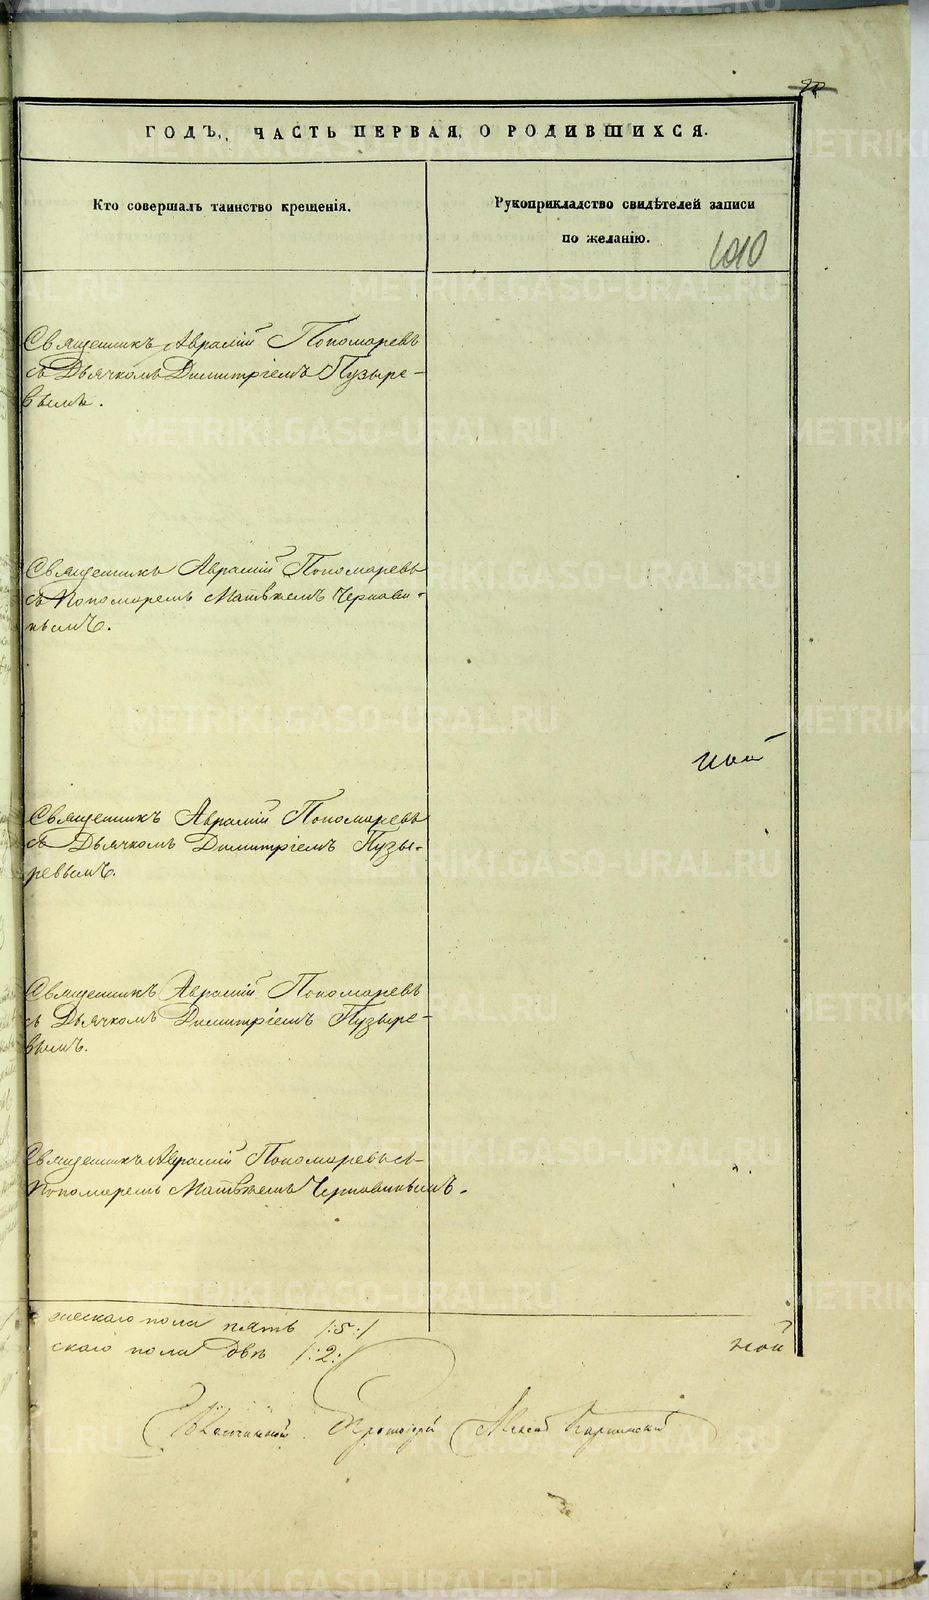 ГОДЪ, ЧАСТЬ ПЕРВАЯ, О РОДИВШИХСЯ.
Кто совершалъ таинство крещенія.
Рукоприкладство свидѣтелей записи
по желанію.
1010
Священникъ Аврамій Пономаревъ
съ Дьячкомъ Димитріемъ Пузыре-
вымъ.
Священникъ Аврамій Пономаревъ
съ Пономаремъ Матвѣемъ Чернави-
нымъ.
Священникъ Аврамій Пономаревъ
съ Дьячкомъ Димитріемъ Пузы-
ревымъ.
Священникъ Аврамій Пономаревъ
съ Дьячкомъ Димитріемъ Пузыре-
вымъ.
Священникъ Аврамій Пономаревъ съ
Пономаремъ Матвѣемъ Чернавинымъ.
жескаго пола пять /:5:/
скаго пола двѣ /:2:/
Протоіерей
METRIKI.GASO-URAL.RU